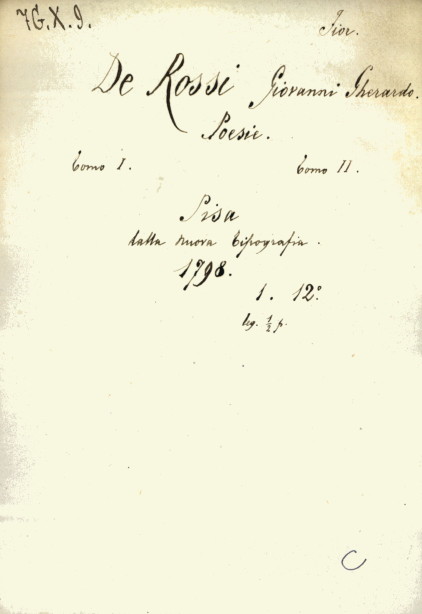 7G.X.9.
Fior.
De Rossi Giovanni Gherardo.
Poesie.
Tomo I. Tomo II.
Pisa
dalla nuova Tipografia.
1798.
1. 12º
leg. ½ p.
C